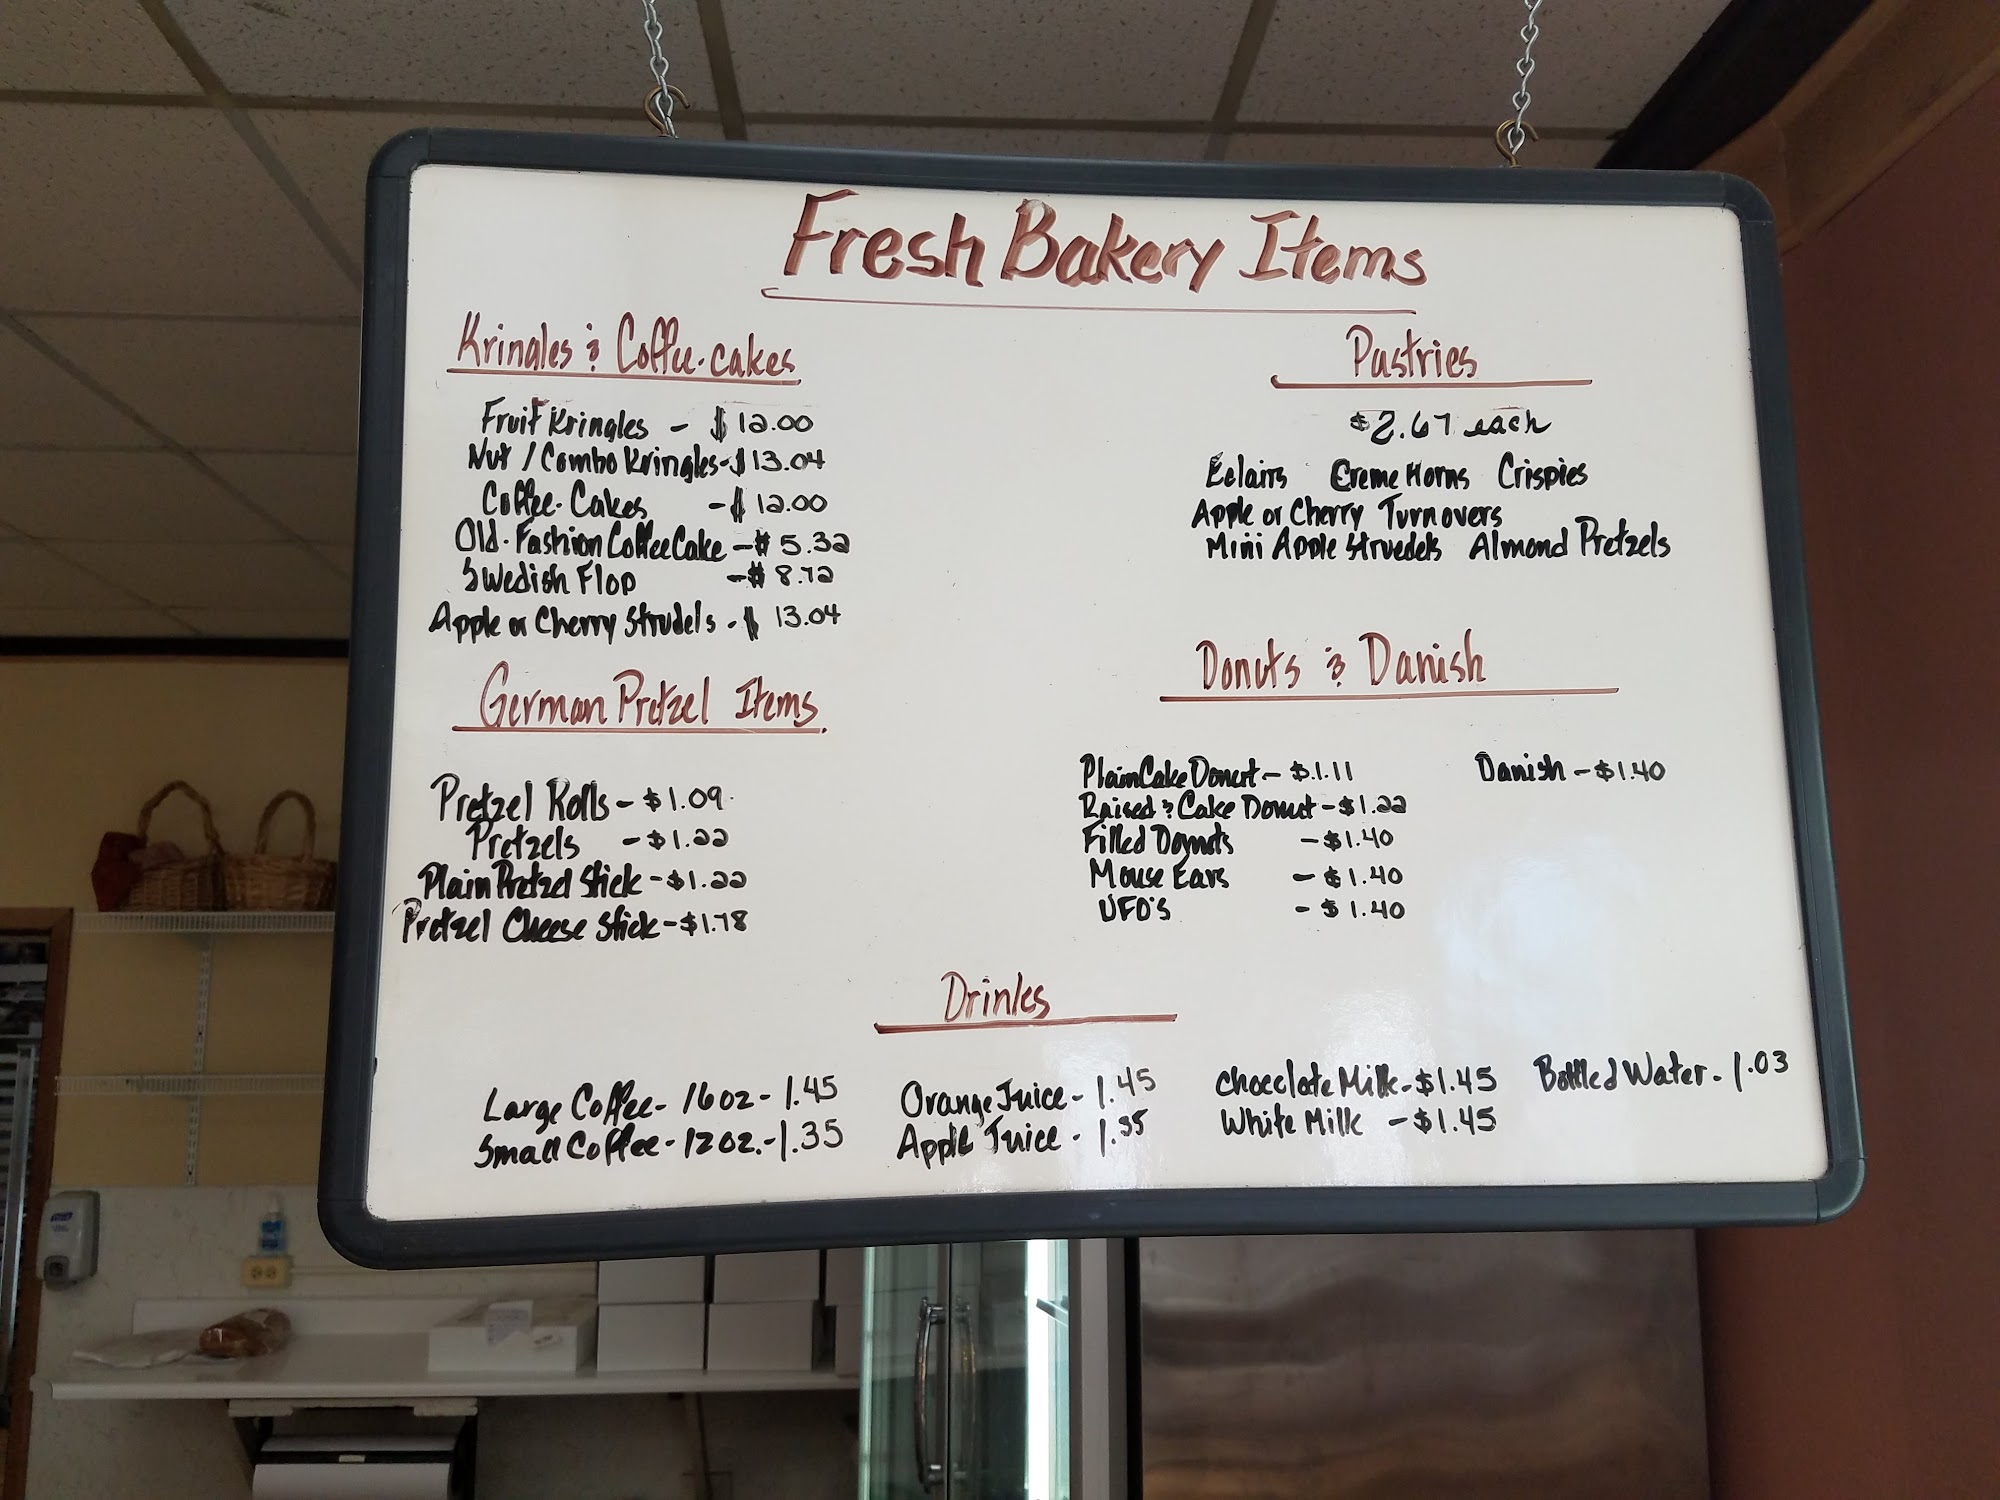 Fresh Bakery Items
Kringles & Coffee-cakes
Fruit Kringles - $12.00
Nut / Combo Kringles - $13.04
Coffee-Cakes - $12.00
Old-Fashion Coffee Cake - $5.32
Swedish Flop - $8.72
Apple or Cherry Strudels - $13.04
German Pretzel Items
Pretzel Rolls - $1.09
Pretzels - $1.22
Plain Pretzel Stick - $1.22
Pretzel Cheese Stick - $1.78
Pastries
$2.67 each
Eclairs Creme Horns Crispies
Apple or Cherry Turnovers
Mini Apple Struedels Almond Pretzels
Donuts & Danish
Plain Cake Donut - $1.11 Danish - $1.40
Raised & Cake Donut - $1.22
Filled Donuts - $1.40
Mouse Ears - $1.40
UFO's - $1.40
Drinks
Large Coffee - 16oz - 1.45 Orange Juice - 1.45 Chocclate Milk - $1.45 Bottled Water - 1.03
Small Coffee - 12oz. - 1.35 Apple Juice - 1.35 White Milk - $1.45